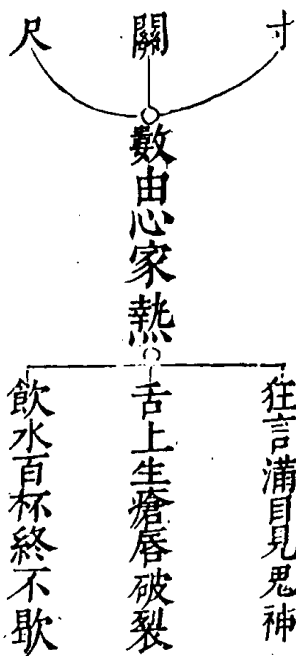 寸
關
尺
數由心家熱
狂言滿目見鬼神
舌上生瘡唇破裂
飲水百杯終不歇